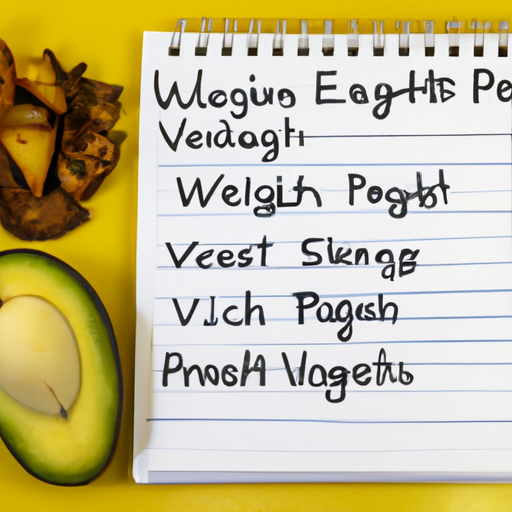 Wlogiuo EagHts Pe
Veidagh
Welgih Pogbt
Veest Skengs
VJch Pagesh
PnosH Vagetb